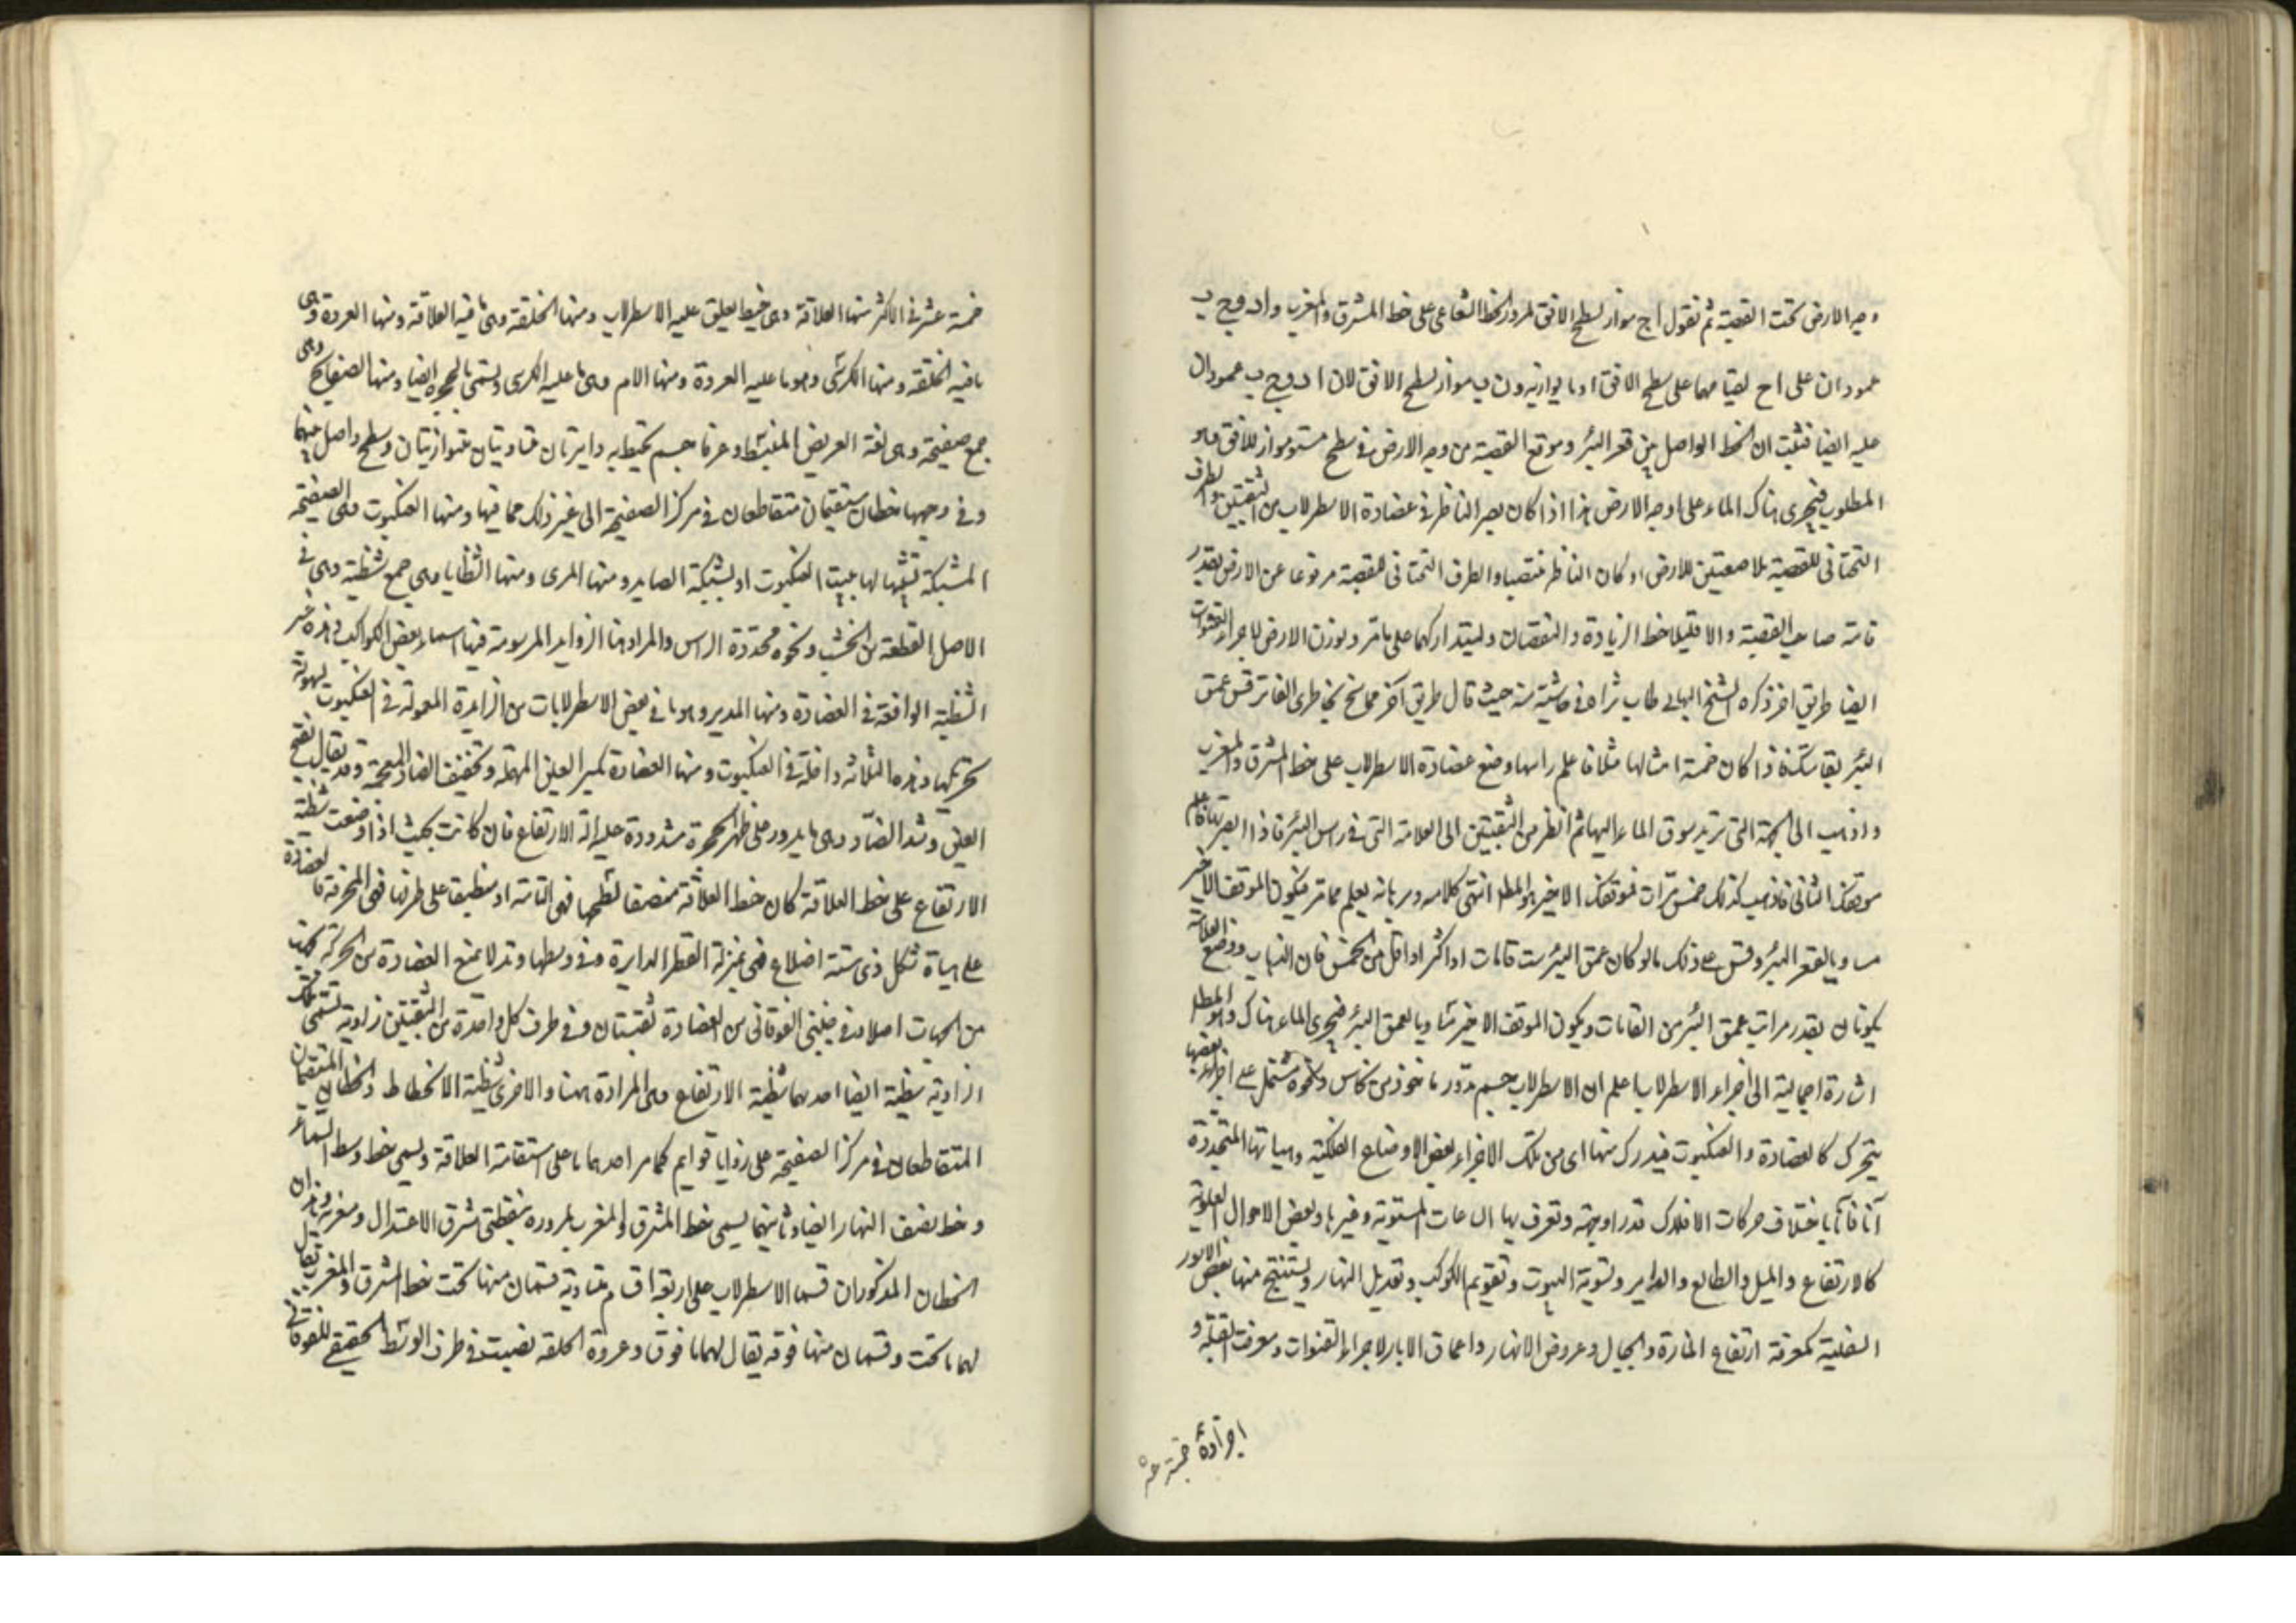 وجه الارض تحت القصبة ثم نقول ا ج مواز لسطح الافق لمرور الخط الشعاعى على خط المشرق والمغرب و ا د و ج ب
عمودان على ا ج لقيامهما على سطح الافق او ما يوازيه و ن ب مواز لسطح الافق لان ا د و ج ب عمودان
عليه ايضا فثبت ان الخط الواصل بين قعر البئر وموقع القصبة من وجه الارض فى سطح مستو مواز للافق وهو
المطلوب فيجرى هناك الماء على وجه الارض هذا اذا كان بصر الناظر فى عضادة الاسطرلاب من الثقبتين والطرف
التحتانى للقصبة ملاصقتين للارض او كان الناظر منتصبا والطرف التحتانى للقصبة مرفوعا عن الارض بقدر
قامة صاحب القصبة والا فليلاحظ الزيادة والنقصان وليتداركهما على ما مر ولوزن الارض لاجراء القنوات
ايضا طريق اخر ذكره الشيخ البهائى طاب ثراه فى حاشية منه حيث قال طريق آخر مما سنح بخاطرى الفاتر قس عمق
البئر بقامتك فاذا كان خمسة امثالها مثلا فاعلم راسها وضع عضادة الاسطرلاب على خط المشرق والمغرب
واذهب الى الجهة التى تريد سوق الماء اليها ثم انظر من الثقبتين الى العلامة التى فى راس البئر فاذا ابصرتها فاعلم
موقفك الثانى فاذهب كذلك خمس مرات فموقفك الاخير هو المط انتهى كلامه وبرهانه يعلم مما مر فيكون الموقف الاخير
مساويا لقعر البئر وقس على ذلك ما لو كان عمق البئر ست قامات او اكثر او اقل من الخمس فان الذهاب ووضع العلامة
يكونان بقدر مرات عمق البئر من القامات ويكون الموقف الاخير مساويا لعمق البئر فيجرى الماء هناك وهو المط
اشارة اجمالية الى اجزاء الاسطرلاب اعلم ان الاسطرلاب جسم مدور ماخوذ من نحاس ونحوه مشتمل على اجزاء بعضها
يتحرك كالعضادة والعنكبوت فيدرك منها اى من تلك الاجزاء بعض الاوضاع الفلكية وهيآتها المتجددة
آنا فآنا باختلاف حركات الافلاك قدرا وجهة وتعرف بها الساعات المستوية وغيرها وبعض الاحوال العلوية
كالارتفاع والميل والطالع والداير وتسوية البيوت وتقويم الكوكب وتعديل النهار ويستنتج منها بعض الامور
السفلية كمعرفة ارتفاع المنارة والجبال وعروض الانهار واعماق الابار لاجراء القنوات ومعرفة القبلة و
اجزاؤه خمسة عشر
خمسة عشر فى الاكثر منها العلاقة وهى خيط يعلق عليه الاسطرلاب ومنها الحلقة وهى ما فيه العلاقة ومنها العروة وهى
ما فيه الحلقة ومنها الكرسى وهو ما عليه العروة ومنها الام وهى ما عليه الكرسى ويسمى بالحجرة ايضا ومنها الصفايح وهى
جمع صفيحة وهى لغة العريض المنبسط وعرفا جسم يحيط به دايرتان متساويتان متوازيتان وسطح واصل بينهما
وفى وجهها خطان مستقيمان متقاطعان فى مركز الصفيحة الى غير ذلك مما فيها ومنها العنكبوت وهى الصفيحة
المشبكة تشبيها لها ببيت العنكبوت او بشبكة الصايد ومنها المرى ومنها الشظايا وهى جمع شظية وهى فى
الاصل القطعة من الخشب ونحوه محددة الراس والمراد هنا الزوايد المرسومة فيها اسماء بعض الكواكب وهذه غير
الشظية الواقعة فى العضادة ومنها المدير وهو ما فى بعض الاسطرلابات من الزايدة المعمولة فى العنكبوت لسهولة
تحريكها وهذه الثلاثة داخلة فى العنكبوت ومنها العضادة بكسر العين المهملة وتخفيف الضاد المعجمة وقد يقال بفتح
العين وشد الضاد وهى ما يدور على ظهر الحجرة مشدودة عليه الة الارتفاع فان كانت بحيث اذا وضعت شظية
الارتفاع على خط العلاقة كان خط العلاقة منصفا لسطحها فهى التامة او منطبقا على طرفها فهى المحرفة والعضادة
على هيأة شكل ذى ستة اضلاع فهى بمنزلة القطر للدايرة وفى وسطها وتد لا يمنع العضادة من الحركة
من الجهات اصلا وفى جنبى الفوقانى من العضادة ثقبتان وفى طرف كل واحدة من الثقبتين زاوية تسمى تلك
الزاوية شظية ايضا احدهما شظية الارتفاع وهى المرادة ههنا والاخرى شظية الانحطاط والخطان المستقيمان
المتقاطعان فى مركز الصفيحة على زوايا قوايم كما مر احدهما ما على استقامة العلاقة ويسمى خط وسط السماء
وخط نصف النهار ايضا وثانيهما يسمى خط المشرق والمغرب لمروره بنقطتى مشرق الاعتدال ومغربه وهذان
الخطان المذكوران قسما الاسطرلاب على اربعة اقسام متساوية قسمان منها تحت خط المشرق والمغرب يقال
لهما ما تحت وقسمان منها فوقه يقال لهما ما فوق وعروة الحلقة نصبت فى طرف الوسط الحقيقى للفوقانى